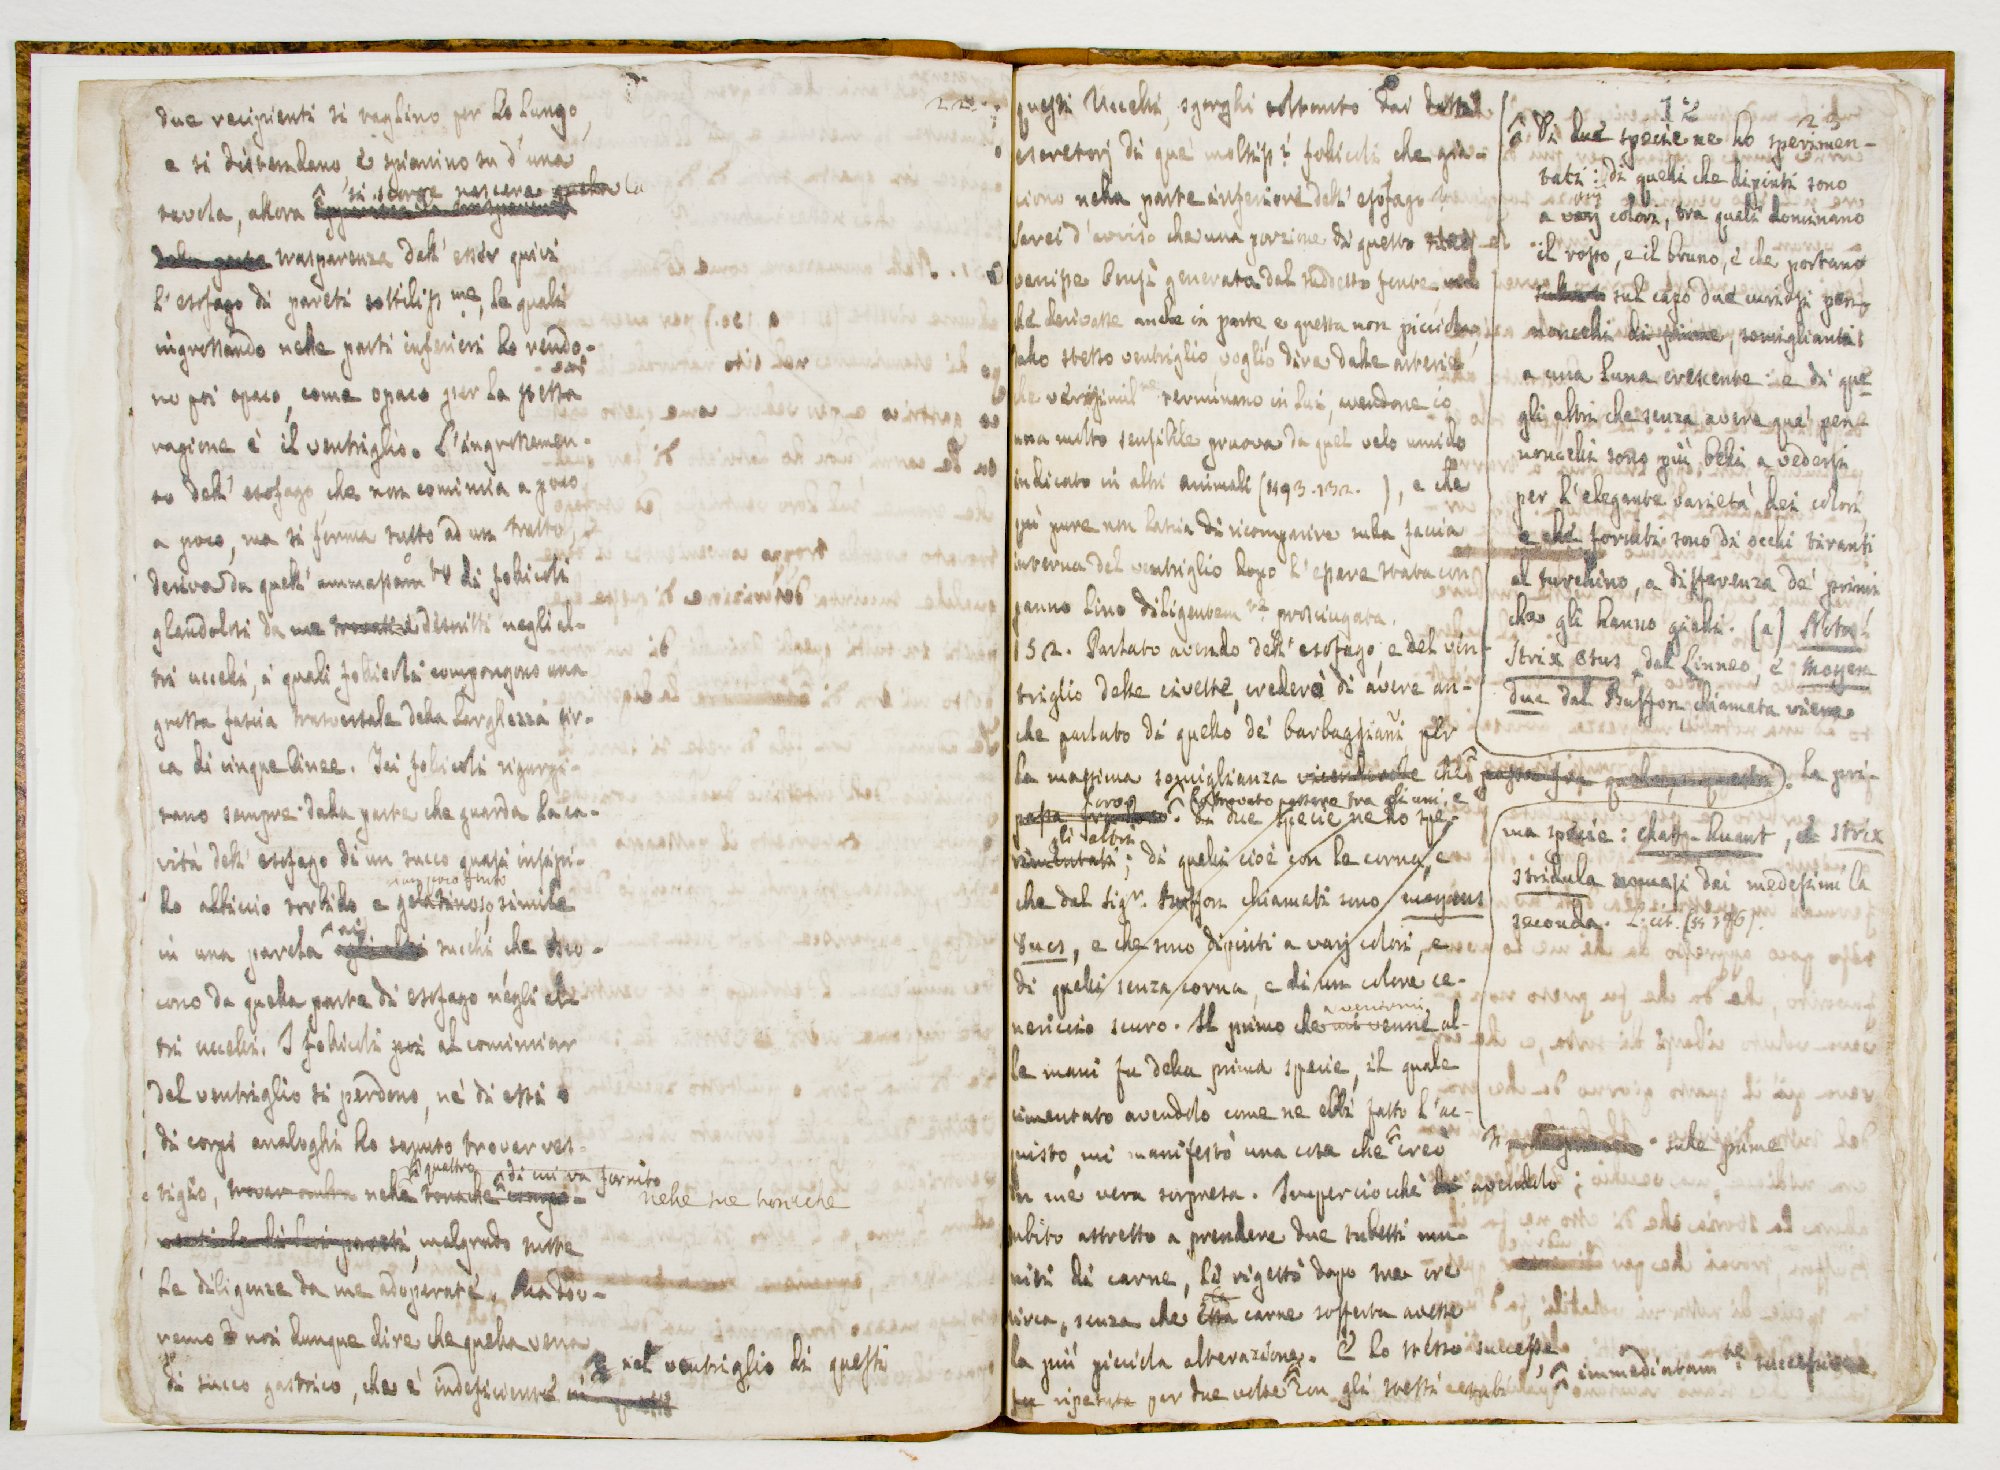 due recipienti si taglino per lo lungo,
e si distendano, e spianino su d'una
si scorge nascere quella la
tavola, allora
trasparenza dell' esser quivi
l'esofago di pareti sottiliss.me, le quali
ingrossando nelle parti inferiori lo rendo-
no poi opaco, come opaco per la stessa
ragione è il ventriglio. L'ingrossamen-
to dell' esofago, che non comincia a poco
a poco, ma si forma tutto ad un tratto,
deriva da quell' ammassam.to di folicoli
glandolosi da me descritti negli al-
tri uccelli, i quali folicoli compongono una
grossa fascia trasversale della larghezza cir-
ca di cinque linee. Tei folicoli rigurgi-
tano sempre dalla parte che guarda la ca-
vità dell' esofago di un succo quasi insipi-
un poco
do albiccio torbido, e gelatinoso, simile
in una parola ai succhi che esco-
cono da quella parte di esofago negli al-
tri uccelli. I folicoli poi al cominciar
del ventriglio si perdono, né di essi o
di corpi analoghi ho saputo trover ves-
quattro di cui va fornito
tigio, nelle tonache
nelle sue tonache
malgrado tutte
le diligenze da me adoperate. Ma dov-
remo noi dunque dire che quella vena
di succo gastrico, che è indeficiente
nel ventriglio di questi
22
questi Uccelli, sgorghi soltanto dai dutti
escretorj di que' moltiss.i folicoli che gia-
ciono nella parte inferiore dell' esofago?
Sarei d'avviso che una porzione di questo
venisse bensì generata dal suddetto fonte,
ma derivasse anche in parte e questa non picciola,
dallo stesso ventriglio, voglio dire dalle arterie
che verisimil.ne terminano in lui, avendone io
una molto sensibile pruova da quel velo umido
indicato in altri animali (§§ 93.132. ), e che
qui pure non lascia di ricomparire sulla faccia
interna del ventriglio dopo l'essere stata con
panno lino diligentem.te prosciugata.
152. Parlato avendo dell' esofago, e del ven-
triglio delle civette, crederò di avere an-
che parlato di quello de' barbaggiani, per
la massima somiglianza
ho trovato passare tra gli uni, e
gli altri
Di due specie ne ho spe-
rimentati; di quelli cioè con le corna, e
che dal Sig.r Buffon chiamati sono moyens
Ducs, e che sono dipinti a varj colori, e
di quelli senza corna, e di un colore ce-
nericcio scuro. Il primo che mi venne al-
a venirmi
le mani fu della prima specie, il quale
cimentato avendolo come ne ebbi fatto l'ac-
quisto, mi manifestò una cosa che creò
in me vera sorpresa. Imperciocchè avendolo
subito astretto a prendere due tubetti mu-
niti di carne, li rigettò dopo tre ore
circa, senza che essa carne sofferta avesse
la più picciola alterazione. E lo stesso successe
ripetuta per due volte con gli stessi
immediatam.te successive
sulle prime
12
23
Di due specie ne ho sperimen-
tati: di quelli che dipinti sono
a varj colori, tra quali dominano
il rosso, e il bruno, e che portano
sul capo due curiosi pen-
noncelli di piume, somiglianti
a una luna crescente: e di que
gli altri che senza avere que' pen-
noncelli sono più belli a vedersi
per l'elegante varietà dei colori,
e che forniti sono di occhi tiranti
al turchino, a differenza de' primi
che gli hanno gialli. (a) Nota!
Strix Otus dal Linneo, e Moyen
duc dal Buffon chiamata viene
La pri-
ma specie: chat-huant, e Strix
stridula nomasi dai medesimi la
seconda. L: cit. (§§ 146).